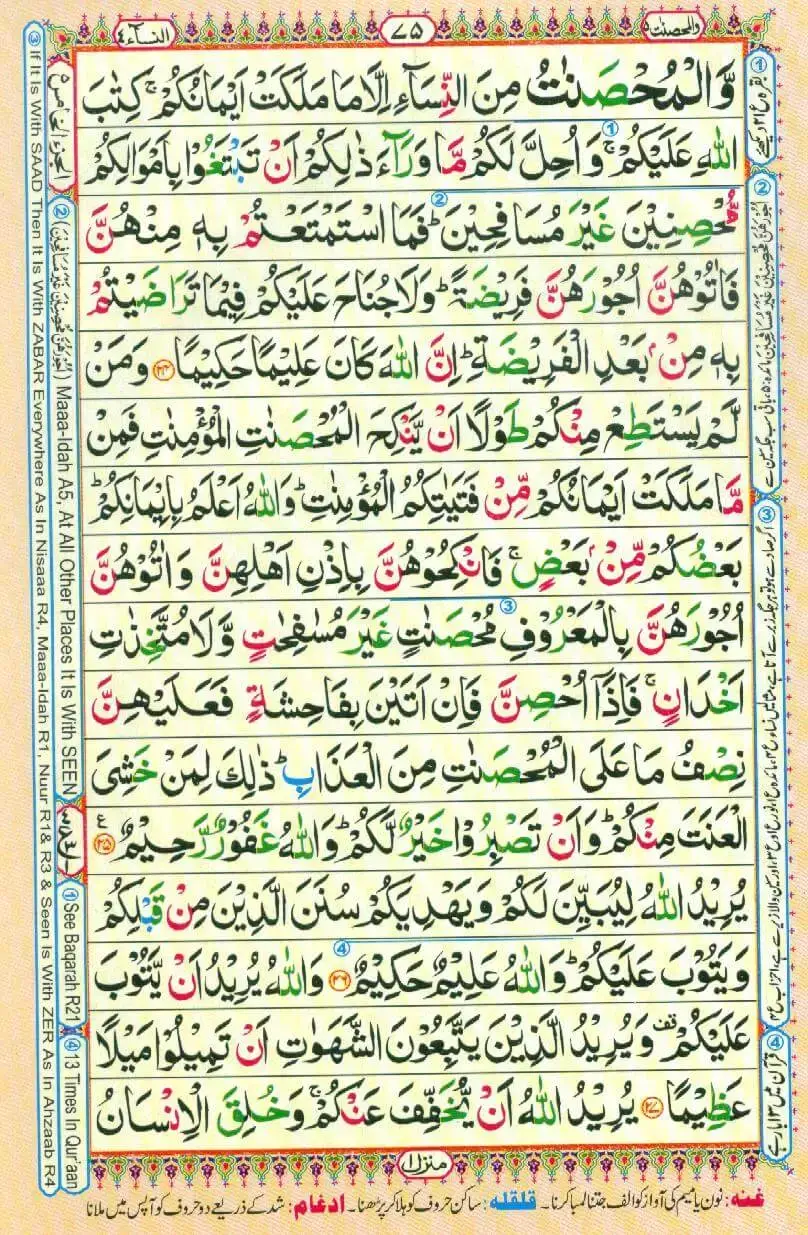 والمحصنت ٥
٧٥
النساء ٤
وَّالْمُحْصَنٰتُ مِنَ النِّسَآءِ اِلَّا مَا مَلَكَتْ اَيْمَانُكُمْ ۚ كِتٰبَ
اللّٰهِ عَلَيْكُمْ ۚ وَ اُحِلَّ لَكُمْ مَّا وَرَآءَ ذٰلِكُمْ اَنْ تَبْتَغُوْا بِاَمْوَالِكُمْ
مُّحْصِنِيْنَ غَيْرَ مُسَافِحِيْنَ ؕ فَمَا اسْتَمْتَعْتُمْ بِهٖ مِنْهُنَّ
فَاٰتُوْهُنَّ اُجُوْرَهُنَّ فَرِيْضَةً ؕ وَلَا جُنَاحَ عَلَيْكُمْ فِيْمَا تَرَاضَيْتُمْ
بِهٖ مِنْۢ بَعْدِ الْفَرِيْضَةِ ؕ اِنَّ اللّٰهَ كَانَ عَلِيْمًا حَكِيْمًا ۝٢٤ وَمَنْ
لَّمْ يَسْتَطِعْ مِنْكُمْ طَوْلًا اَنْ يَّنْكِحَ الْمُحْصَنٰتِ الْمُؤْمِنٰتِ فَمِنْ
مَّا مَلَكَتْ اَيْمَانُكُمْ مِّنْ فَتَيٰتِكُمُ الْمُؤْمِنٰتِ ؕ وَاللّٰهُ اَعْلَمُ بِاِيْمَانِكُمْ ؕ
بَعْضُكُمْ مِّنْۢ بَعْضٍ ۚ فَانْكِحُوْهُنَّ بِاِذْنِ اَهْلِهِنَّ وَاٰتُوْهُنَّ
اُجُوْرَهُنَّ بِالْمَعْرُوْفِ مُحْصَنٰتٍ غَيْرَ مُسٰفِحٰتٍ وَّلَا مُتَّخِذٰتِ
اَخْدَانٍ ۚ فَاِذَاۤ اُحْصِنَّ فَاِنْ اَتَيْنَ بِفَاحِشَةٍ فَعَلَيْهِنَّ
نِصْفُ مَا عَلَى الْمُحْصَنٰتِ مِنَ الْعَذَابِ ؕ ذٰلِكَ لِمَنْ خَشِيَ
الْعَنَتَ مِنْكُمْ ؕ وَاَنْ تَصْبِرُوْا خَيْرٌ لَّكُمْ ؕ وَاللّٰهُ غَفُوْرٌ رَّحِيْمٌ ۝٢٥
يُرِيْدُ اللّٰهُ لِيُبَيِّنَ لَكُمْ وَيَهْدِيَكُمْ سُنَنَ الَّذِيْنَ مِنْ قَبْلِكُمْ
وَيَتُوْبَ عَلَيْكُمْ ؕ وَاللّٰهُ عَلِيْمٌ حَكِيْمٌ ۝٢٦ وَاللّٰهُ يُرِيْدُ اَنْ يَّتُوْبَ
عَلَيْكُمْ ۫ وَيُرِيْدُ الَّذِيْنَ يَتَّبِعُوْنَ الشَّهَوٰتِ اَنْ تَمِيْلُوْا مَيْلًا
عَظِيْمًا ۝٢٧ يُرِيْدُ اللّٰهُ اَنْ يُّخَفِّفَ عَنْكُمْ ۚ وَخُلِقَ الْاِنْسَانُ
منزل ١
غنه: نون یا میم کی آواز کو الف جتنا لمبا کرنا۔ قلقله: ساکن حروف کو ہلا کر پڑھنا۔ ادغام: شد کے ذریعے دو حروف کو آپس میں ملانا
① See Baqarah R21
② (اُجُوْرَهُنَّ مُحْصِنِيْنَ غَيْرَ مُسَافِحِيْنَ) Maaa-Idah A5, At All Other Places It Is With SEEN
③ If It Is With SAAD Then It Is With ZABAR Everywhere As In Nisaaa R4, Maaa-Idah R1, Nuur R1& R3 & Seen Is With ZER As In Ahzaab R4
④ 13 Times In Qur'aan